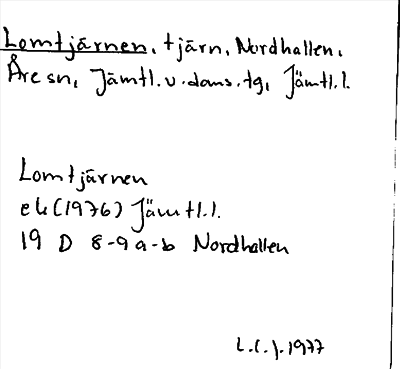 Lomtjärnen, tjärn, Nordhallen,
Åre sn, Jämtl. v. doms. tg, Jämtl. l.
Lomtjärnen
ek (1976) Jämtl. l.
19 D 8-9 a-b Nordhallen
L.(.). 1977